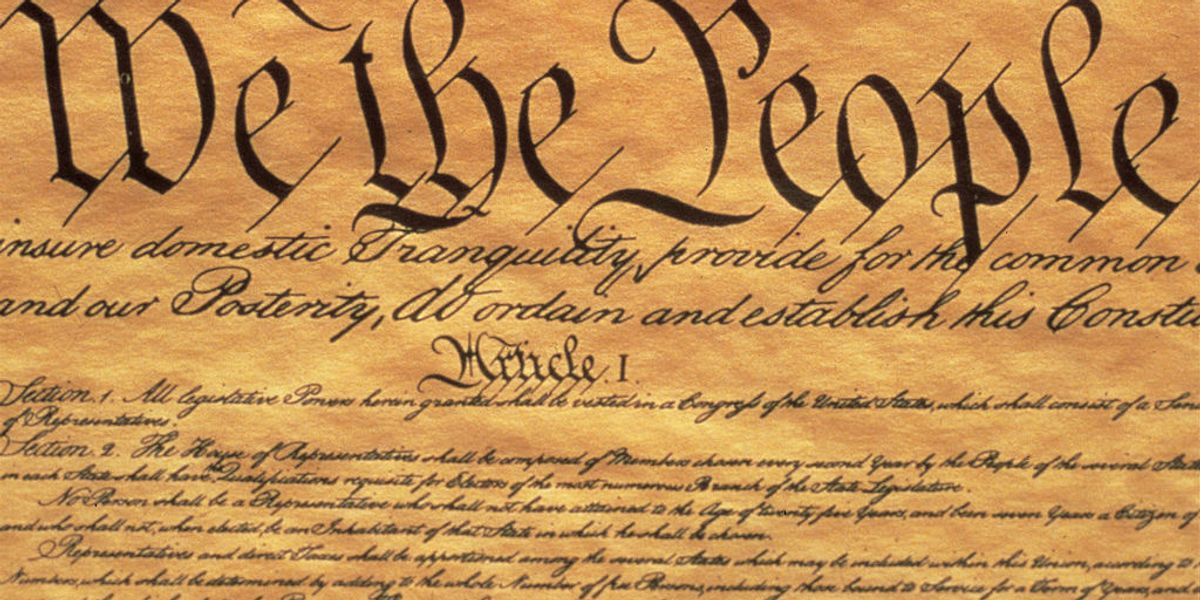 We the People
insure domestic Tranquility, provide for the common
and our Posterity, do ordain and establish this Constit
Article. I.
Section. 1. All legislative Powers herein granted shall be vested in a Congress of the United States, which shall consist of a Sen
of Representatives.
Section. 2. The House of Representatives shall be composed of Members chosen every second Year by the People of the several States
in each State shall have the Qualifications requisite for Electors of the most numerous Branch of the State Legislature.
No Person shall be a Representative who shall not have attained to the Age of twenty five Years, and been seven Years a Citizen of
and who shall not, when elected, be an Inhabitant of that State in which he shall be chosen.
Representatives and direct Taxes shall be apportioned among the several States which may be included within this Union, according to
Numbers, which shall be determined by adding to the whole Number of free Persons, including those bound to Service for a Term of Years, and